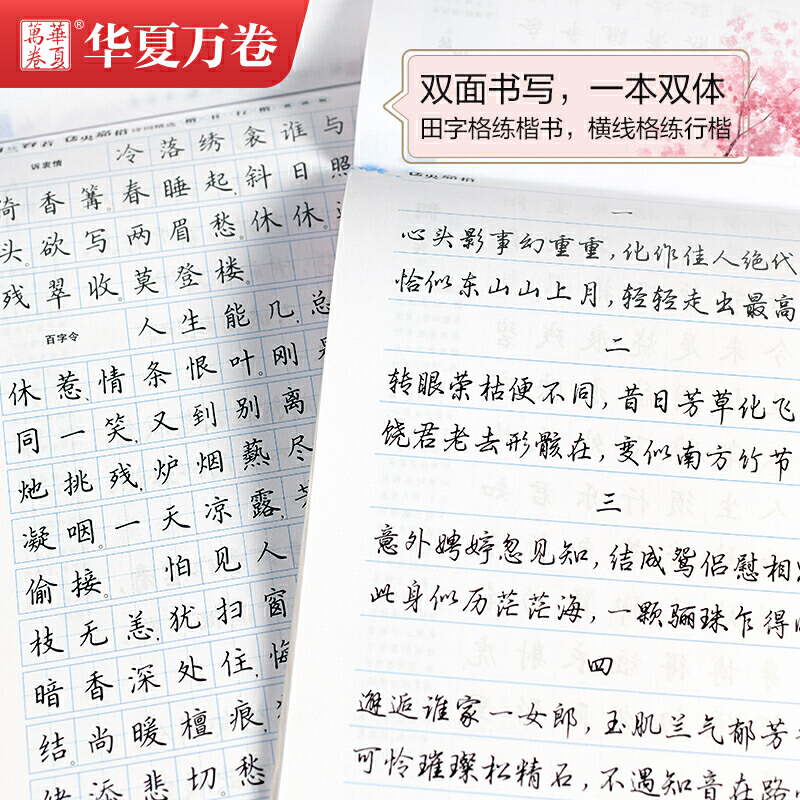 華夏
萬卷
®
华夏万卷
双面书写，一本双体
田字格练楷书，横线格练行楷
诉衷情
冷落绣衾谁与
倚香篝。春睡起，斜日照
头。欲写两眉愁。休休。
残翠收。莫登楼。
百字令
人生能几，总
休惹，情条恨叶。刚
同一笑，又到别离
灺挑残，炉烟爇尽
凝咽。一天凉露，
偷接。怕见人
枝无恙，犹扫窗
暗香深处住，悔
结。尚暖檀痕，
添悲切。愁
一
心头影事幻重重，化作佳人绝代
恰似东山山上月，轻轻走出最高
二
转眼荣枯便不同，昔日芳草化飞
饶君老去形骸在，变似南方竹节
三
意外娉婷忽见知，结成鸳侣慰相
此身似历茫茫海，一颗骊珠乍得
四
邂逅谁家一女郎，玉肌兰气郁芳
可怜璀璨松精石，不遇知音在路